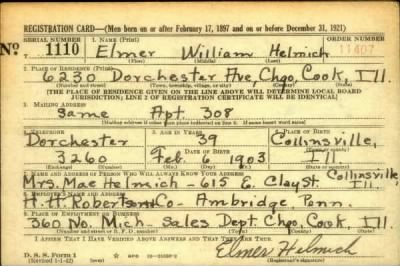 REGISTRATION CARD—(Men born on or after February 17, 1897 and on or before December 31, 1921)
SERIAL NUMBER 1. NAME (Print) ORDER NUMBER
No 1110 Elmer William Helmich 11407
(First) (Middle) (Last)
2. PLACE OF RESIDENCE (Print)
6230 Dorchester Ave, Chgo, Cook, Ill.
(Number and street) (Town, township, village, or city) (County) (State)
[THE PLACE OF RESIDENCE GIVEN ON THE LINE ABOVE WILL DETERMINE LOCAL BOARD
JURISDICTION; LINE 2 OF REGISTRATION CERTIFICATE WILL BE IDENTICAL]
3. MAILING ADDRESS
Same Apt. 308
[Mailing address if other than place indicated on line 2. If same insert word same]
4. TELEPHONE 5. AGE IN YEARS 6. PLACE OF BIRTH
Dorchester 39 Collinsville,
DATE OF BIRTH (Town or county)
3260 Feb. 6 1903 Ill
(Exchange) (Number) (Mo.) (Day) (Yr.) (State or country)
7. NAME AND ADDRESS OF PERSON WHO WILL ALWAYS KNOW YOUR ADDRESS
Mrs. Mae Helmich - 615 E. Clay St. Collinsville, Ill
8. EMPLOYER'S NAME AND ADDRESS
H. H. Robertson Co - Ambridge, Penn.
9. PLACE OF EMPLOYMENT OR BUSINESS
360 No. Mich. - Sales Dept. Chgo, Cook, Ill.
(Number and street or R. F. D. number) (Town) (County) (State)
I AFFIRM THAT I HAVE VERIFIED ABOVE ANSWERS AND THAT THEY ARE TRUE.
D. S. S. Form 1
(Revised 1-1-42) (over) Elmer Helmich